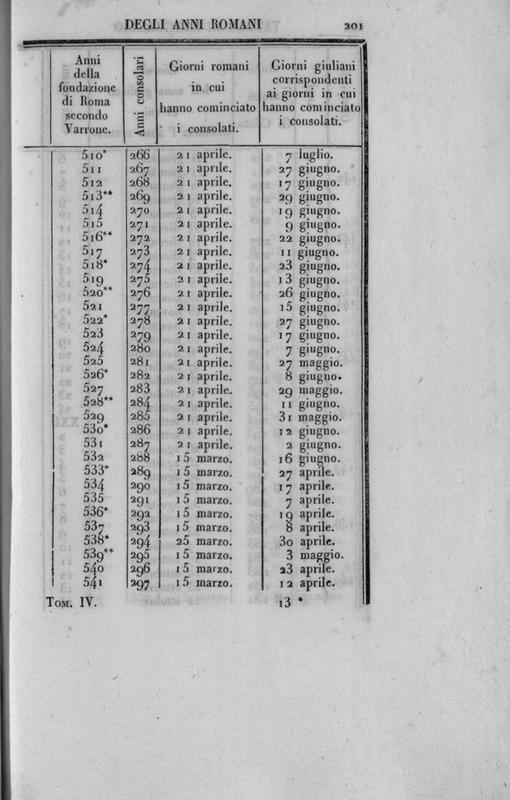 DEGLI ANNI ROMANI 201
Anni della fondazione di Roma secondo Varrone. | Anni consolari | Giorni romani in cui hanno cominciato i consolati. | Giorni giuliani corrispondenti ai giorni in cui hanno cominciato i consolati.
510* 266 21 aprile. 7 luglio.
511 267 21 aprile. 27 giugno.
512 268 21 aprile. 17 giugno.
513** 269 21 aprile. 29 giugno.
514 270 21 aprile. 19 giugno.
515 271 21 aprile. 9 giugno.
516** 272 21 aprile. 22 giugno.
517 273 21 aprile. 11 giugno.
518* 274 21 aprile. 23 giugno.
519 275 21 aprile. 13 giugno.
520** 276 21 aprile. 26 giugno.
521 277 21 aprile. 15 giugno.
522* 278 21 aprile. 27 giugno.
523 279 21 aprile. 17 giugno.
524 280 21 aprile. 7 giugno.
525 281 21 aprile. 27 maggio.
526* 282 21 aprile. 8 giugno.
527 283 21 aprile. 29 maggio.
528** 284 21 aprile. 11 giugno.
529 285 21 aprile. 31 maggio.
530* 286 21 aprile. 12 giugno.
531 287 21 aprile. 2 giugno.
532 288 15 marzo. 16 giugno.
533* 289 15 marzo. 27 aprile.
534 290 15 marzo. 17 aprile.
535 291 15 marzo. 7 aprile.
536* 292 15 marzo. 19 aprile.
537 293 15 marzo. 8 aprile.
538* 294 25 marzo. 30 aprile.
539** 295 15 marzo. 3 maggio.
540 296 15 marzo. 23 aprile.
541 297 15 marzo. 12 aprile.
TOM. IV. 13 *